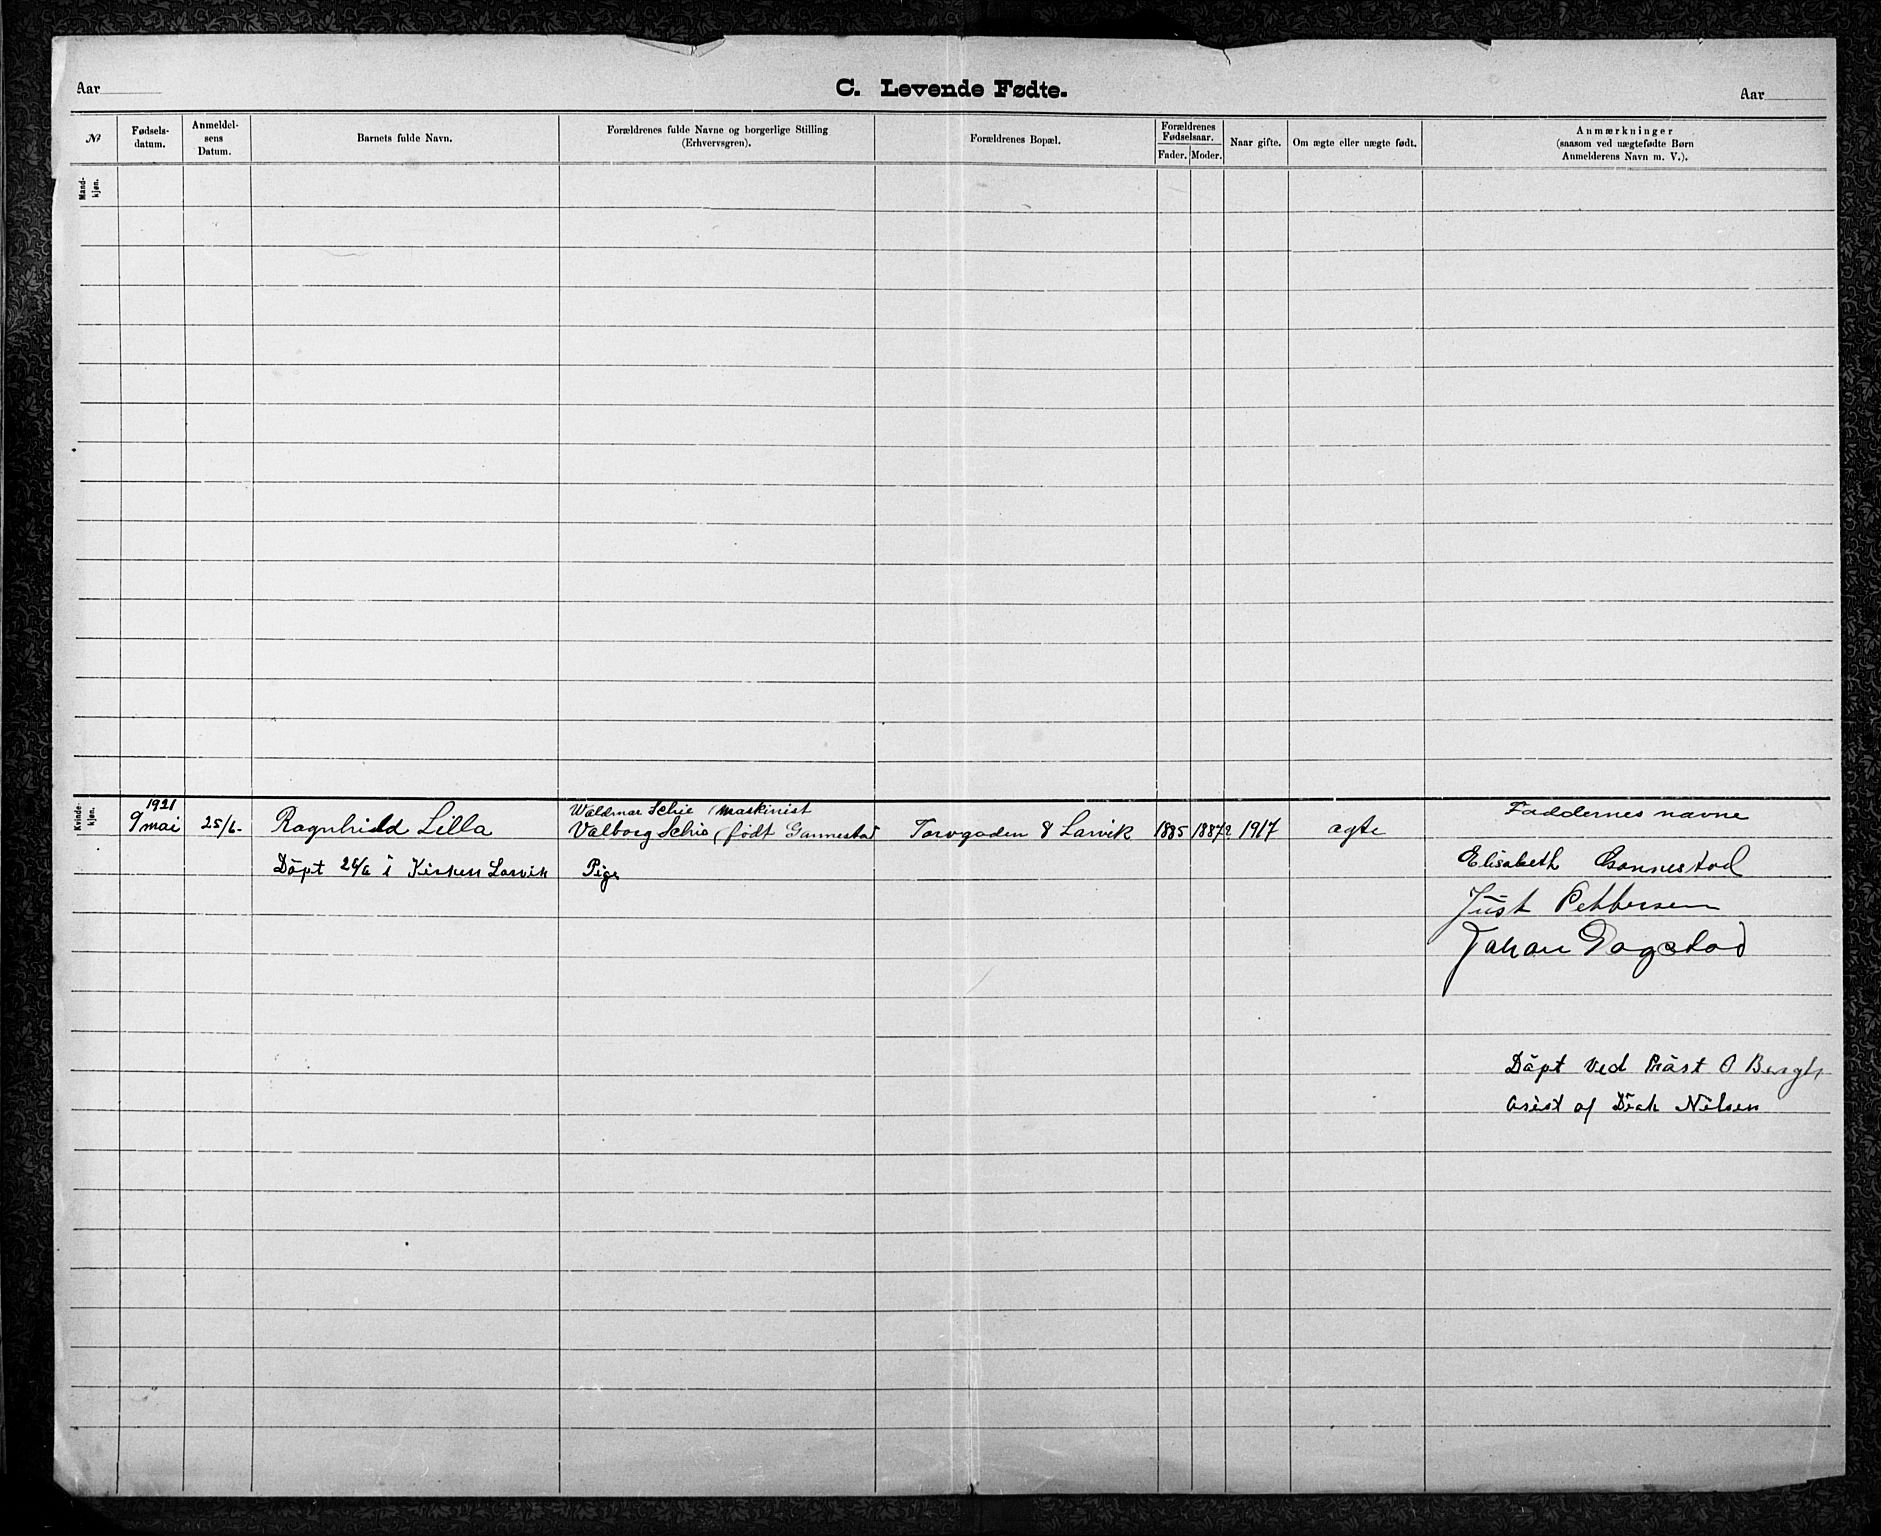 Aar
C. Levende Fødte.
Aar
№
Fødsels-
datum.
Anmeldel-
sens
Datum.
Barnets fulde Navn.
Forældrenes fulde Navne og borgerlige Stilling
(Erhvervsgren).
Forældrenes Bopæl.
Forældrenes
Fødselsaar.
Fader. Moder.
Naar gifte.
Om ægte eller uægte født.
Anmærkninger
(saasom ved uægtefødte Børn
Anmelderens Navn m. V.).
Mand-
kjøn.
Kvinde-
kjøn.
1921
9 mai
25/6-
Ragnhild Lilla
Waldmar Schie (Maskinist
Valborg Schie (født Gannestad
Torvgaden 8 Larvik
1885
1887
1917
ægte
Faddernes navne
Döpt 26/6 i Kirken Larvik
Pige
Elisabeth Gannestad
Just Pettersen
Johan Dagstad
Döpt ved Präst O Bergh
Asist af Diak Nilsen